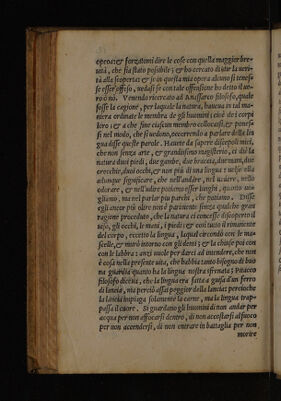 opera: & forzatomi dire le cose con quella maggior bre-
uità, che sia stato possibile; & ho cercato di dir la ueri-
tà alla scoperta: & se in questa mia opera alcuno si tenes-
se esser' offeso, ueda se con tale offensione ho detto il ue-
ro ò nò. Venendo ricercato ad Anassarco filosofo, quale
fosse la cagione, per laquale la natura, haueua in tal ma-
niera ordinate le membra de gli huomini cioè del corpo
loro; & a che fine ciascun membro collocasse, & ponesse
si nel modo, che si uedono, occorrendo a parlare della lin
gua disse queste parole. Hauete da sapere discepoli miei,
che non senza arte, & grandissimo magisterio, ci diè la
natura duoi piedi, due gambe, due braccia, due mani, due
orecchie, duoi occhi, & non più di una lingua: & uolse
uolsuto significare, che nell'andare, nel uedere, nello
odorare, & nell'udire potiamo esser lunghi, quanto uo-
gliamo, ma nel parlar piu parchi, che potiamo. Disse
egli ancor più oltre non è parimente senza qualche gran
ragione proceduto, che la natura ci concesse discoperto il
uiso, gli occhi, le mani, i piedi; & così tutto il rimanente
del corpo, eccetto la lingua, laqual circondò con le ma-
scelle, & murò intorno con gli denti; & la chiuse poi con
con le labbra: anzi uuole per darci ad intendere, che non
è cosa nella presente uita, che habbia tanto bisogno di buo
na guardia quanto ha la lingua nostra sfrenata; Pitacco
filosofo diceua, che la lingua era fatta a guisa d'un ferro
di lancia, ma perciò assai peggior della lancia: percioche
la lancia impiaga solamente la carne, ma la lingua trap-
passa il cuore. Si guardano gli huomini di non andar per
acqua per non affocarsi dentro, di non accostarsi al fuoco
per non accendersi, di non entrare in battaglia per non
morire